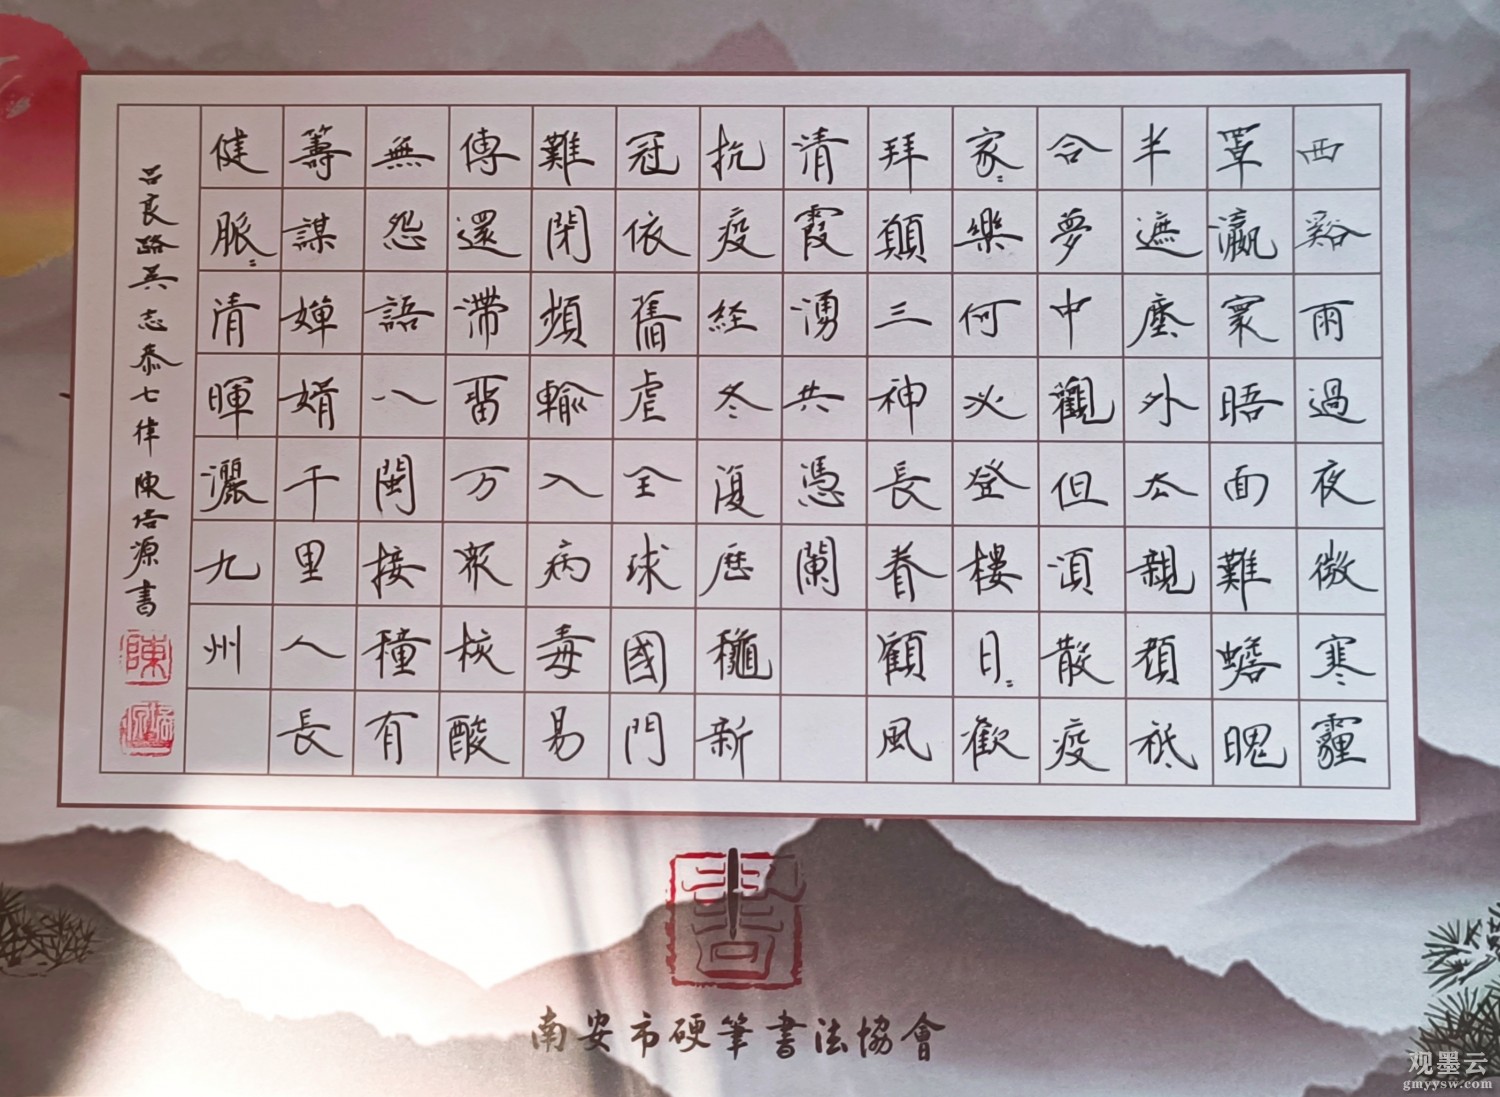 西谿雨過夜微寒霾
罩瀛寰晤面難蟾魄
半遮塵外厺親顏祗
合夢中觀但須散疫
家〻樂何必登樓日〻歡
拜願三神長眷顧風
清霞湧共憑闌
抗疫経冬復歷龝新
冠依舊虐全球國門
難閉頻輸入病毒易
傳還滯畱万眾核酸
無怨語八閩接種有
籌謀嬋娟千里人長
健脈〻清暉灑九州
吕良路吴志恭七律陳培源書
陳
南安市硬筆書法協會
观墨云
gmyysw.com